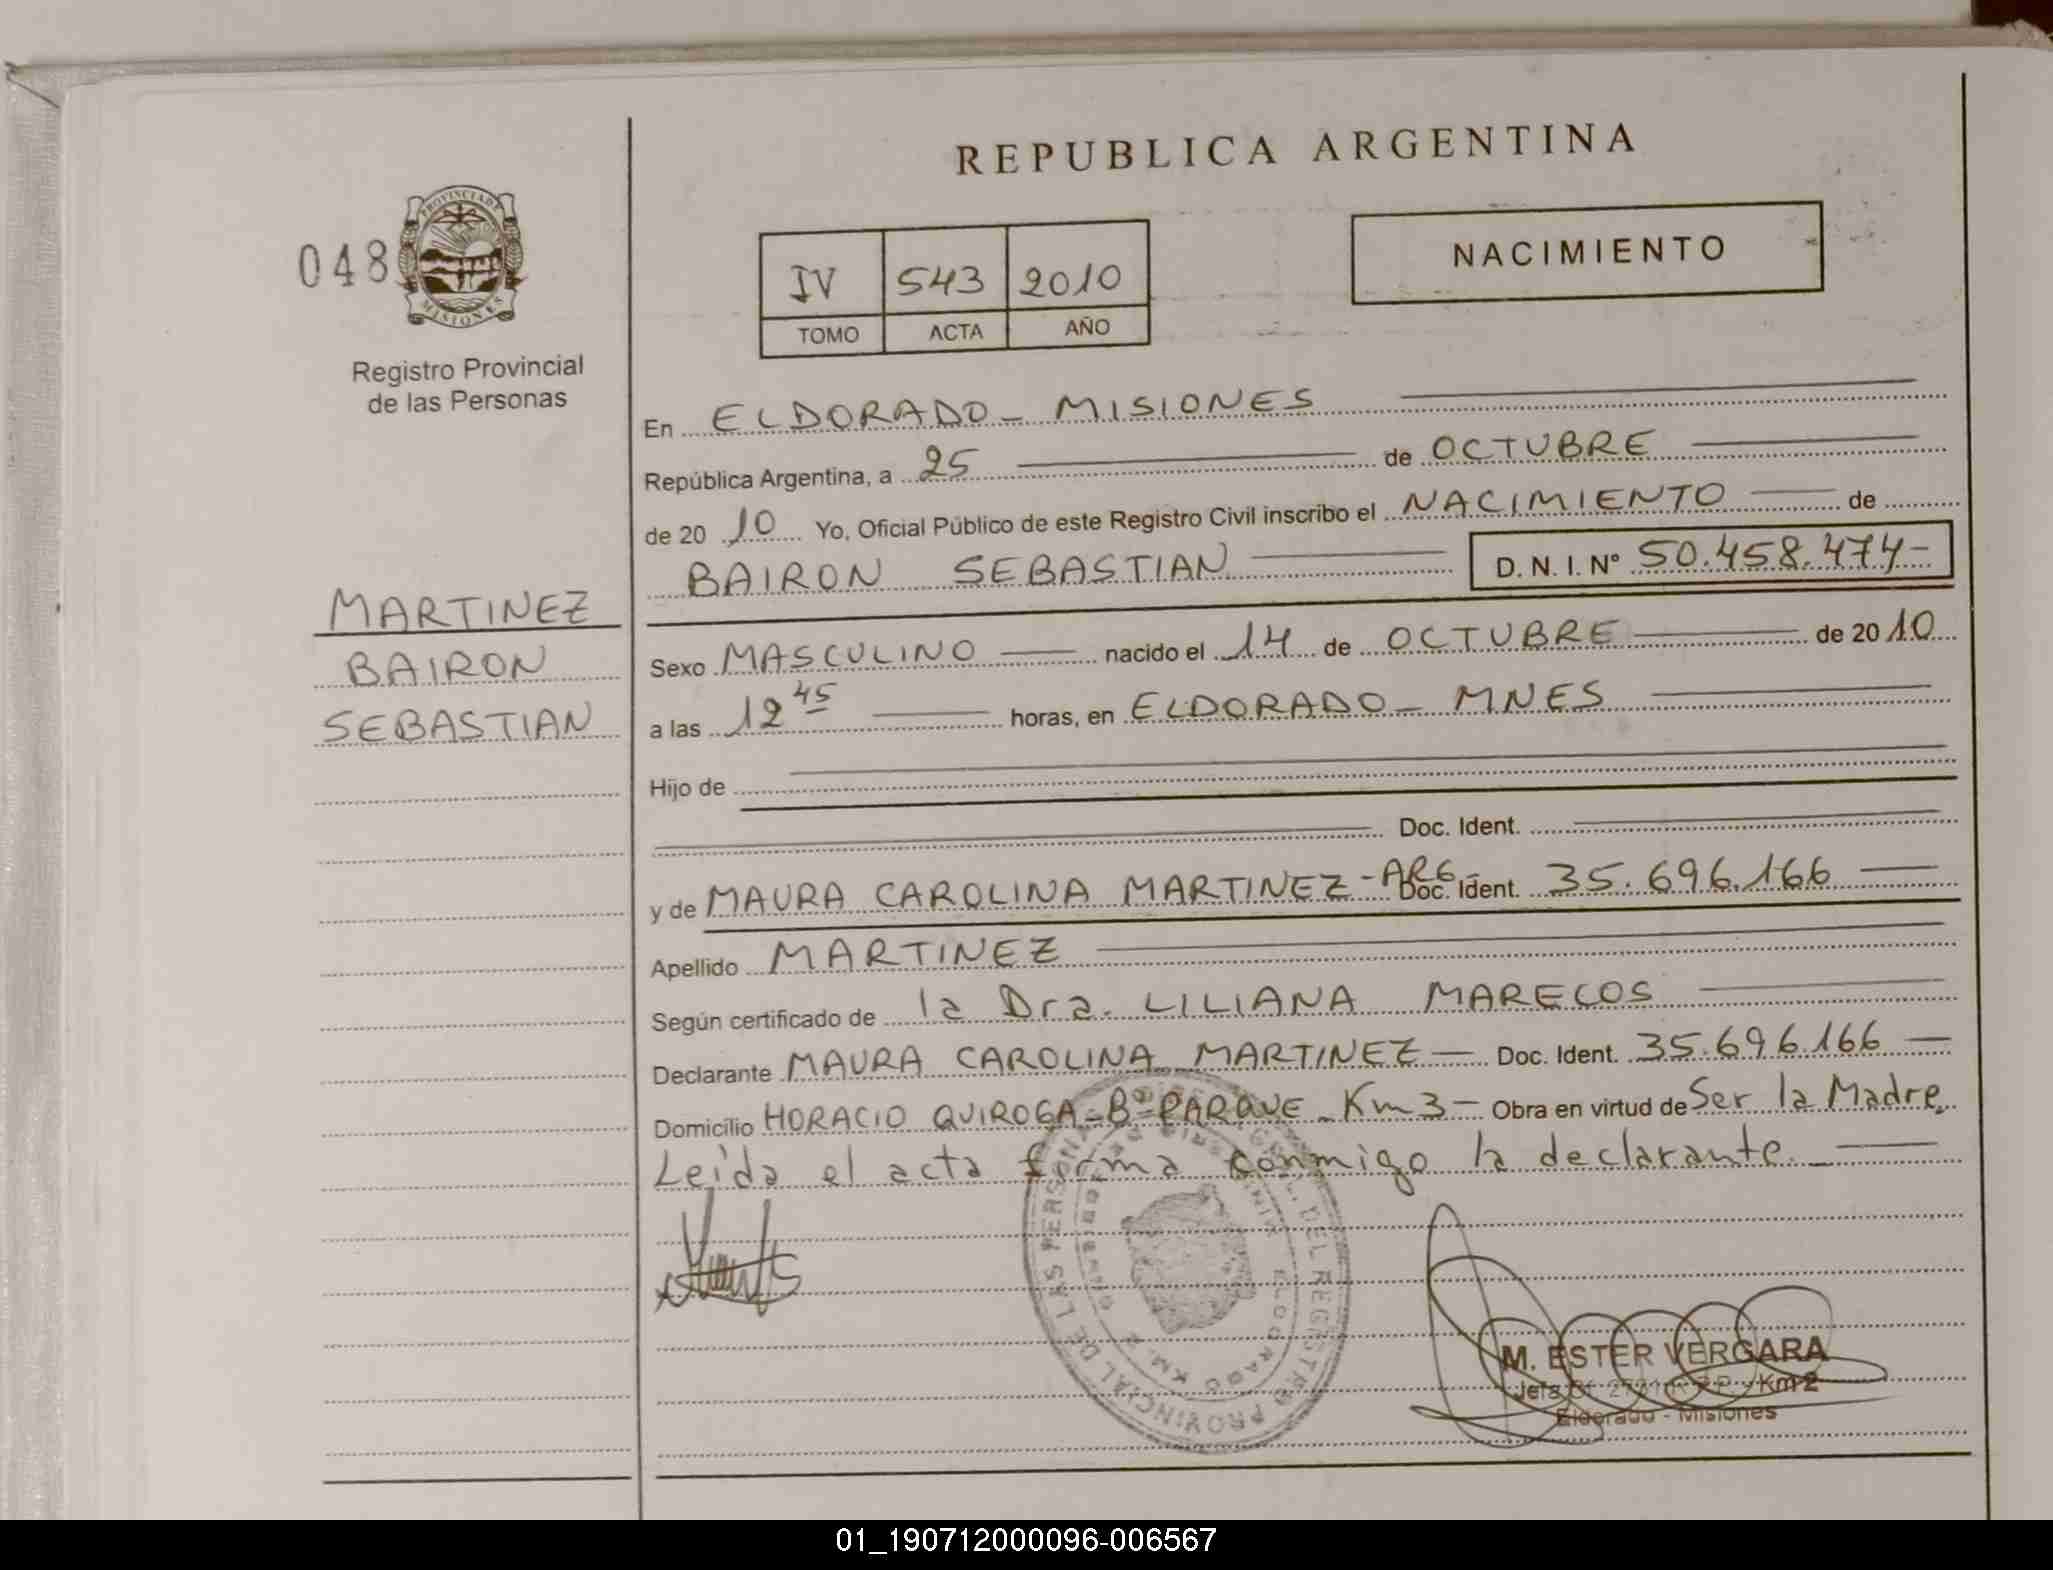 REPUBLICA ARGENTINA
048
PROVINCIA DE
MISIONES
Registro Provincial
de las Personas
IV 543 2010
TOMO ACTA AÑO
NACIMIENTO
MARTINEZ
BAIRON
SEBASTIAN
En ELDORADO - MISIONES
República Argentina, a 25 de OCTUBRE
de 20 10 Yo, Oficial Público de este Registro Civil inscribo el NACIMIENTO de
BAIRON SEBASTIAN D. N. I. Nº 50.458.474-
Sexo MASCULINO nacido el 14 de OCTUBRE de 20 10
a las 12 45 horas, en ELDORADO - MNES
Hijo de
Doc. Ident.
y de MAURA CAROLINA MARTINEZ - ARG. Doc. Ident. 35.696.166
Apellido MARTINEZ
Según certificado de la Dra. LILIANA MARECOS
Declarante MAURA CAROLINA MARTINEZ - Doc. Ident. 35.696.166
Domicilio HORACIO QUIROGA - Bº PARQUE - Km 3 - Obra en virtud de Ser la Madre.
Leida el acta firma conmigo la declarante.
DEL REGISTRO PROVINCIAL DE LAS PERSONAS
ELDORADO KM. 2
M. ESTER VERGARA
Km 2
Eldorado - Misiones
01_190712000096-006567